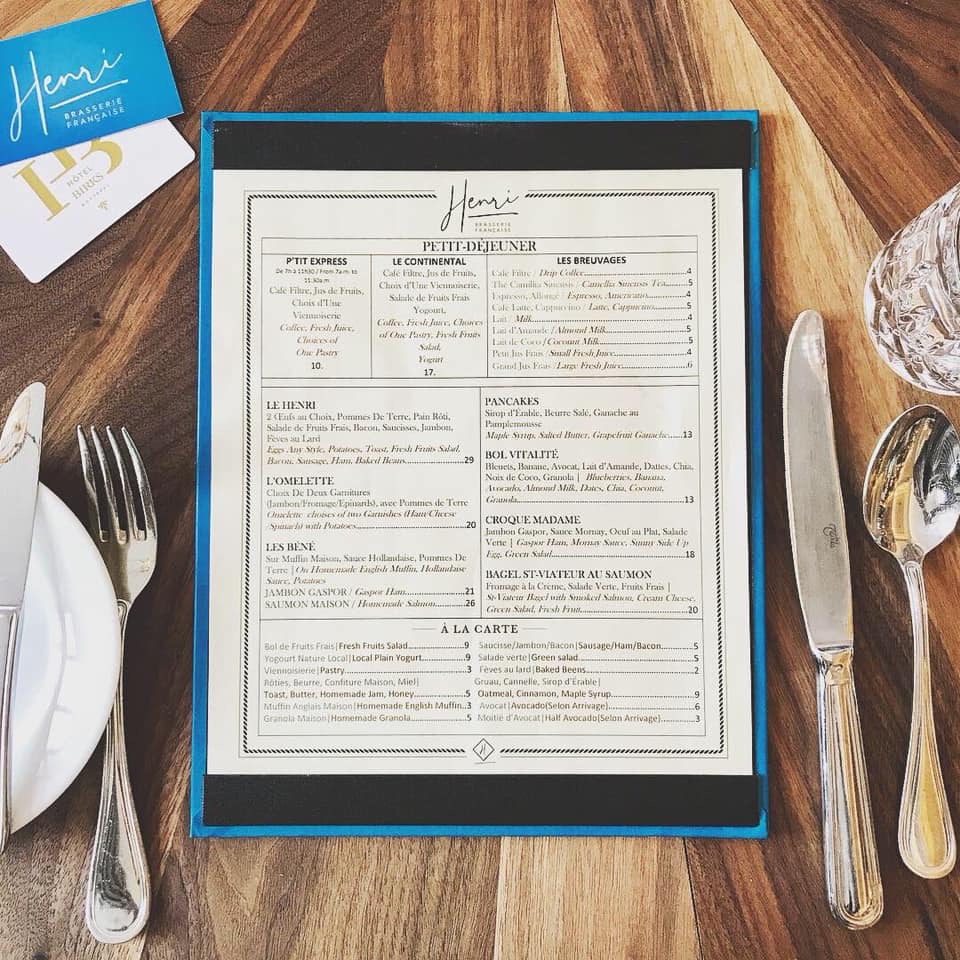 Henri
BRASSERIE
FRANÇAISE
HÔTEL
BIRKS
MONTRÉAL
Henri
BRASSERIE
FRANÇAISE
PETIT-DÉJEUNER
P'TIT EXPRESS
De 7h à 11h30 / From 7a.m. to
11:30a.m.
Café Filtre, Jus de Fruits,
Choix d'Une
Viennoiserie
Coffee, Fresh Juice,
Choices of
One Pastry
10.
LE CONTINENTAL
Café Filtre, Jus de Fruits,
Choix d'Une Viennoiserie,
Salade de Fruits Frais
Yogourt,
Coffee, Fresh Juice, Choices
of One Pastry, Fresh Fruits
Salad,
Yogurt
17.
LES BREUVAGES
Café Filtre / Drip Coffee....4
Thé Camillia Sinensis / Camellia Sinensis Tea....5
Espresso, Allongé / Espresso, Americano....4
Café Latte, Cappuccino / Latte, Cappucino....5
Lait / Milk....4
Lait d'Amande /Almond Milk....5
Lait de Coco /Coconut Milk....5
Petit Jus Frais /Small Fresh Juice....4
Grand Jus Frais /Large Fresh Juice....6
LE HENRI
2 Œufs au Choix, Pommes De Terre, Pain Rôti,
Salade de Fruits Frais, Bacon, Saucisses, Jambon,
Fèves au Lard
Eggs Any Style, Potatoes, Toast, Fresh Fruits Salad,
Bacon, Sausage, Ham, Baked Beans....29
L'OMELETTE
Choix De Deux Garnitures
(Jambon/Fromage/Epinards), avec Pommes de Terre
Omelette choises of two Garnishes (Ham/Cheese
/Spinach) with Potatoes....20
LES BÉNÉ
Sur Muffin Maison, Sauce Hollandaise, Pommes De
Terre | On Homemade English Muffin, Hollandaise
Sauce, Potatoes
JAMBON GASPOR / Gaspor Ham....21
SAUMON MAISON / Homemade Salmon....26
PANCAKES
Sirop d'Érable, Beurre Salé, Ganache au
Pamplemousse
Maple Syrup, Salted Butter, Grapefruit Ganache....13
BOL VITALITÉ
Bleuets, Banane, Avocat, Lait d'Amande, Dattes, Chia,
Noix de Coco, Granola | Blueberries, Banana,
Avocado, Almond Milk, Dates, Chia, Coconut,
Granola....13
CROQUE MADAME
Jambon Gaspor, Sauce Mornay, Oeuf au Plat, Salade
Verte | Gaspor Ham, Mornay Sauce, Sunny Side Up
Egg, Green Salad....18
BAGEL ST-VIATEUR AU SAUMON
Fromage à la Crème, Salade Verte, Fruits Frais |
St-Viateur Bagel with Smoked Salmon, Cream Cheese,
Green Salad, Fresh Fruit....20
À LA CARTE
Bol de Fruits Frais|Fresh Fruits Salad....9
Yogourt Nature Local|Local Plain Yogurt....9
Viennoiserie|Pastry....3
Rôties, Beurre, Confiture Maison, Miel|
Toast, Butter, Homemade Jam, Honey....5
Muffin Anglais Maison|Homemade English Muffin..3
Granola Maison|Homemade Granola....5
Saucisse/Jambon/Bacon|Sausage/Ham/Bacon....5
Salade verte|Green salad....5
Fèves au lard|Baked Beens....2
Gruau, Cannelle, Sirop d'Érable|
Oatmeal, Cinnamon, Maple Syrup....9
Avocat|Avocado(Selon Arrivage)....6
Moitié d'Avocat|Half Avocado(Selon Arrivage)....3